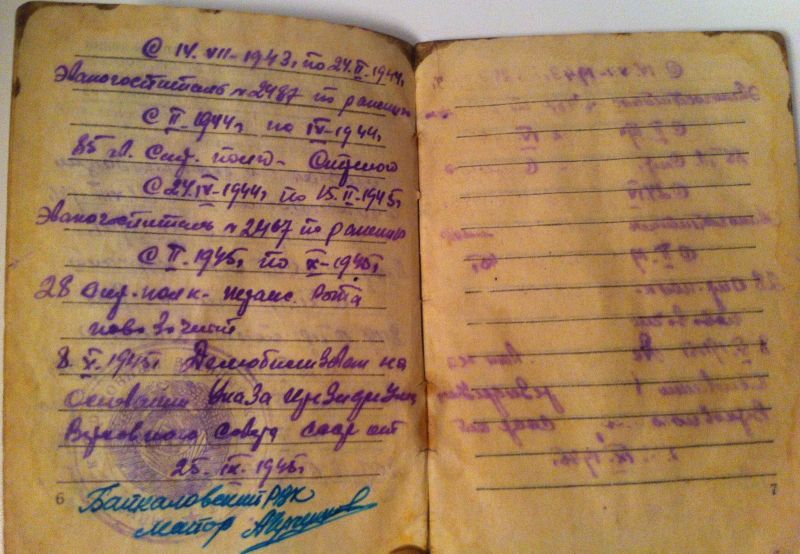 С IV. VII-1943г по 24.II.1944г
Эвакогоспиталь № 2487 по ранению
С II-1944г по IV-1944г
85 гв. Стр. полк-
С 24.IV-1944г по 15.II-1945г
Эвакогоспиталь № 2467 по ранению
С II.1945г по X-1945г
28 стр. полк. Рота
8. X.1945г Демобилизован на
Основании Указа Президиума
Верховного Совета СССР от
25. IX. 1945г
6
Байкаловский РВК
Майор
7